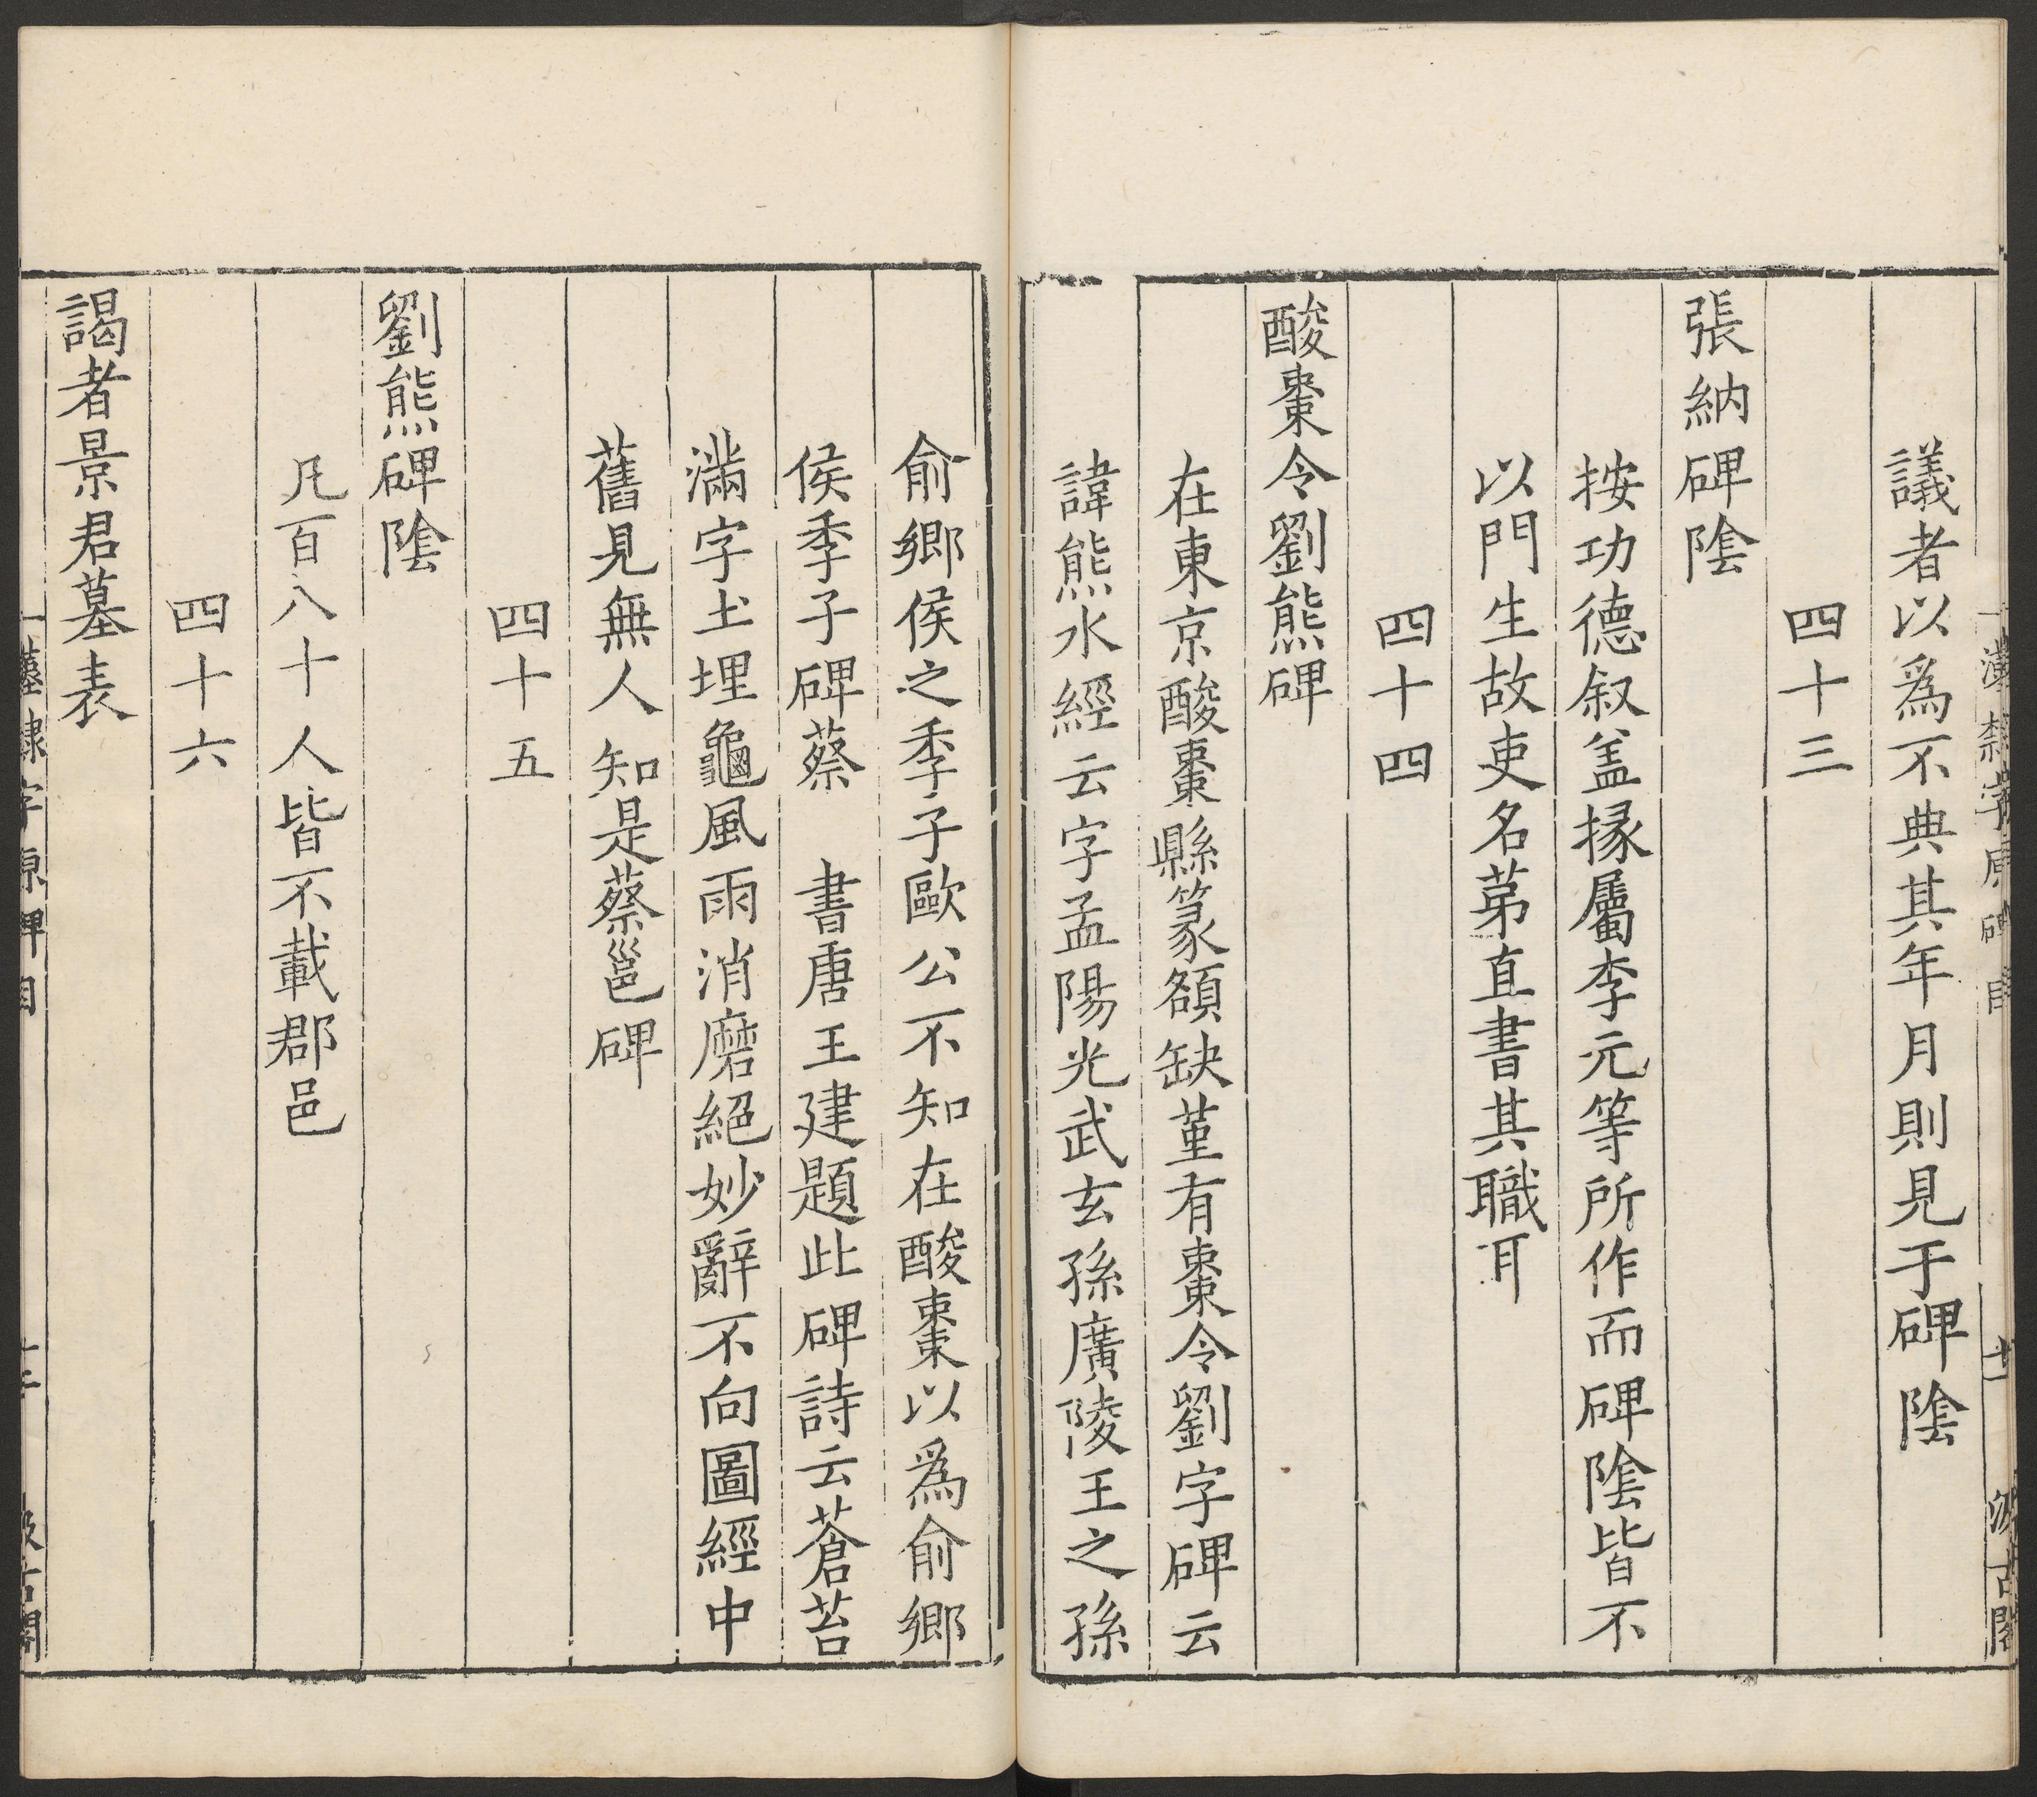 議者以爲不典其年月則見于碑陰
四十三
張納碑陰
按功德叙盖掾屬李元等所作而碑陰皆不
以門生故吏名苐直書其職耳
四十四
酸棗令劉熊碑
在東京酸棗縣篆額缺堇有棗令劉字碑云
諱熊水經云字孟陽光武玄孫廣陵王之孫
俞鄉侯之季子歐公不知在酸棗以爲俞鄉
侯季子碑蔡　書唐王建題此碑詩云蒼苔
滿字土埋龜風雨消磨絕妙辭不向圖經中
舊見無人知是蔡邕碑
四十五
劉熊碑陰
凡百八十人皆不載郡邑
四十六
謁者景君墓表